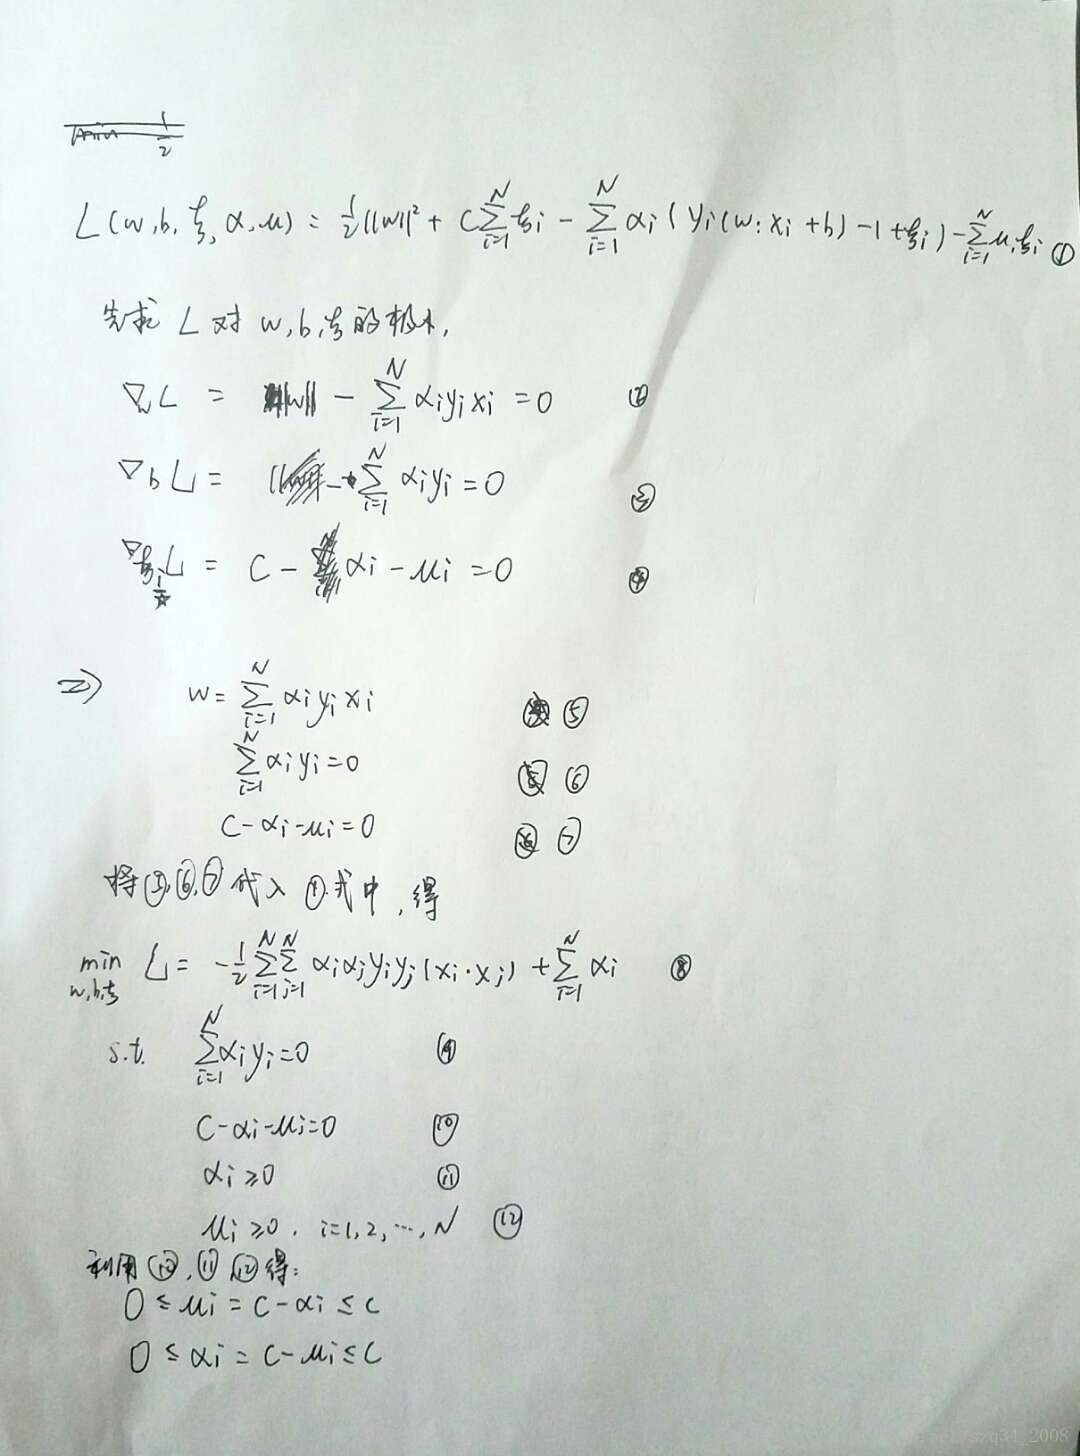 min 1/2
L(w,b,ξ,α,μ) = 1/2||w||² + C∑_{i=1}^{N} ξi − ∑_{i=1}^{N} αi(yi(w·xi+b)−1+ξi) − ∑_{i=1}^{N} μiξi ①
先求 L 对 w,b,ξ的极小,
∇wL = ||w|| − ∑_{i=1}^{N} αiyixi = 0 ②
∇bL = ∑_{i=1}^{N} αiyi = 0 ③
∇ξiL = C − αi − μi = 0 ④
⇒ w = ∑_{i=1}^{N} αiyixi ⑤
∑_{i=1}^{N} αiyi = 0 ⑥
C−αi−μi=0 ⑦
将⑤,⑥,⑦代入①式中,得
min_{w,b,ξ} L = −1/2 ∑_{i=1}^{N} ∑_{j=1}^{N} αiαjyiyj(xi·xj) + ∑_{i=1}^{N} αi ⑧
s.t. ∑_{i=1}^{N} αiyi=0 ⑨
C−αi−μi=0 ⑩
αi≥0 ⑪
μi≥0, i=1,2,…,N ⑫
利用⑩,⑪,⑫得:
0 ≤ μi = C−αi ≤ C
0 ≤ αi = C−μi ≤ C